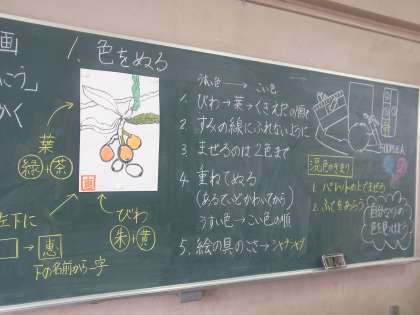 画
1. 色をぬる
葉
緑+茶
左下に
→ 恵
下の名前から一字
びわ
朱+黄
うすい色 → こい色
1. びわ→葉→くきえだの順
2. すみの線にふれないように
3. まぜるのは2色まで
4. 重ねてぬる
(あるていどかわいてから)
うすい色→こい色の順
5. 絵の具のこさ→シャブシャブ
混色のきまり
1. パレットの上でまぜる
2. ふでをあらう
自分なりの
色を見つけよう